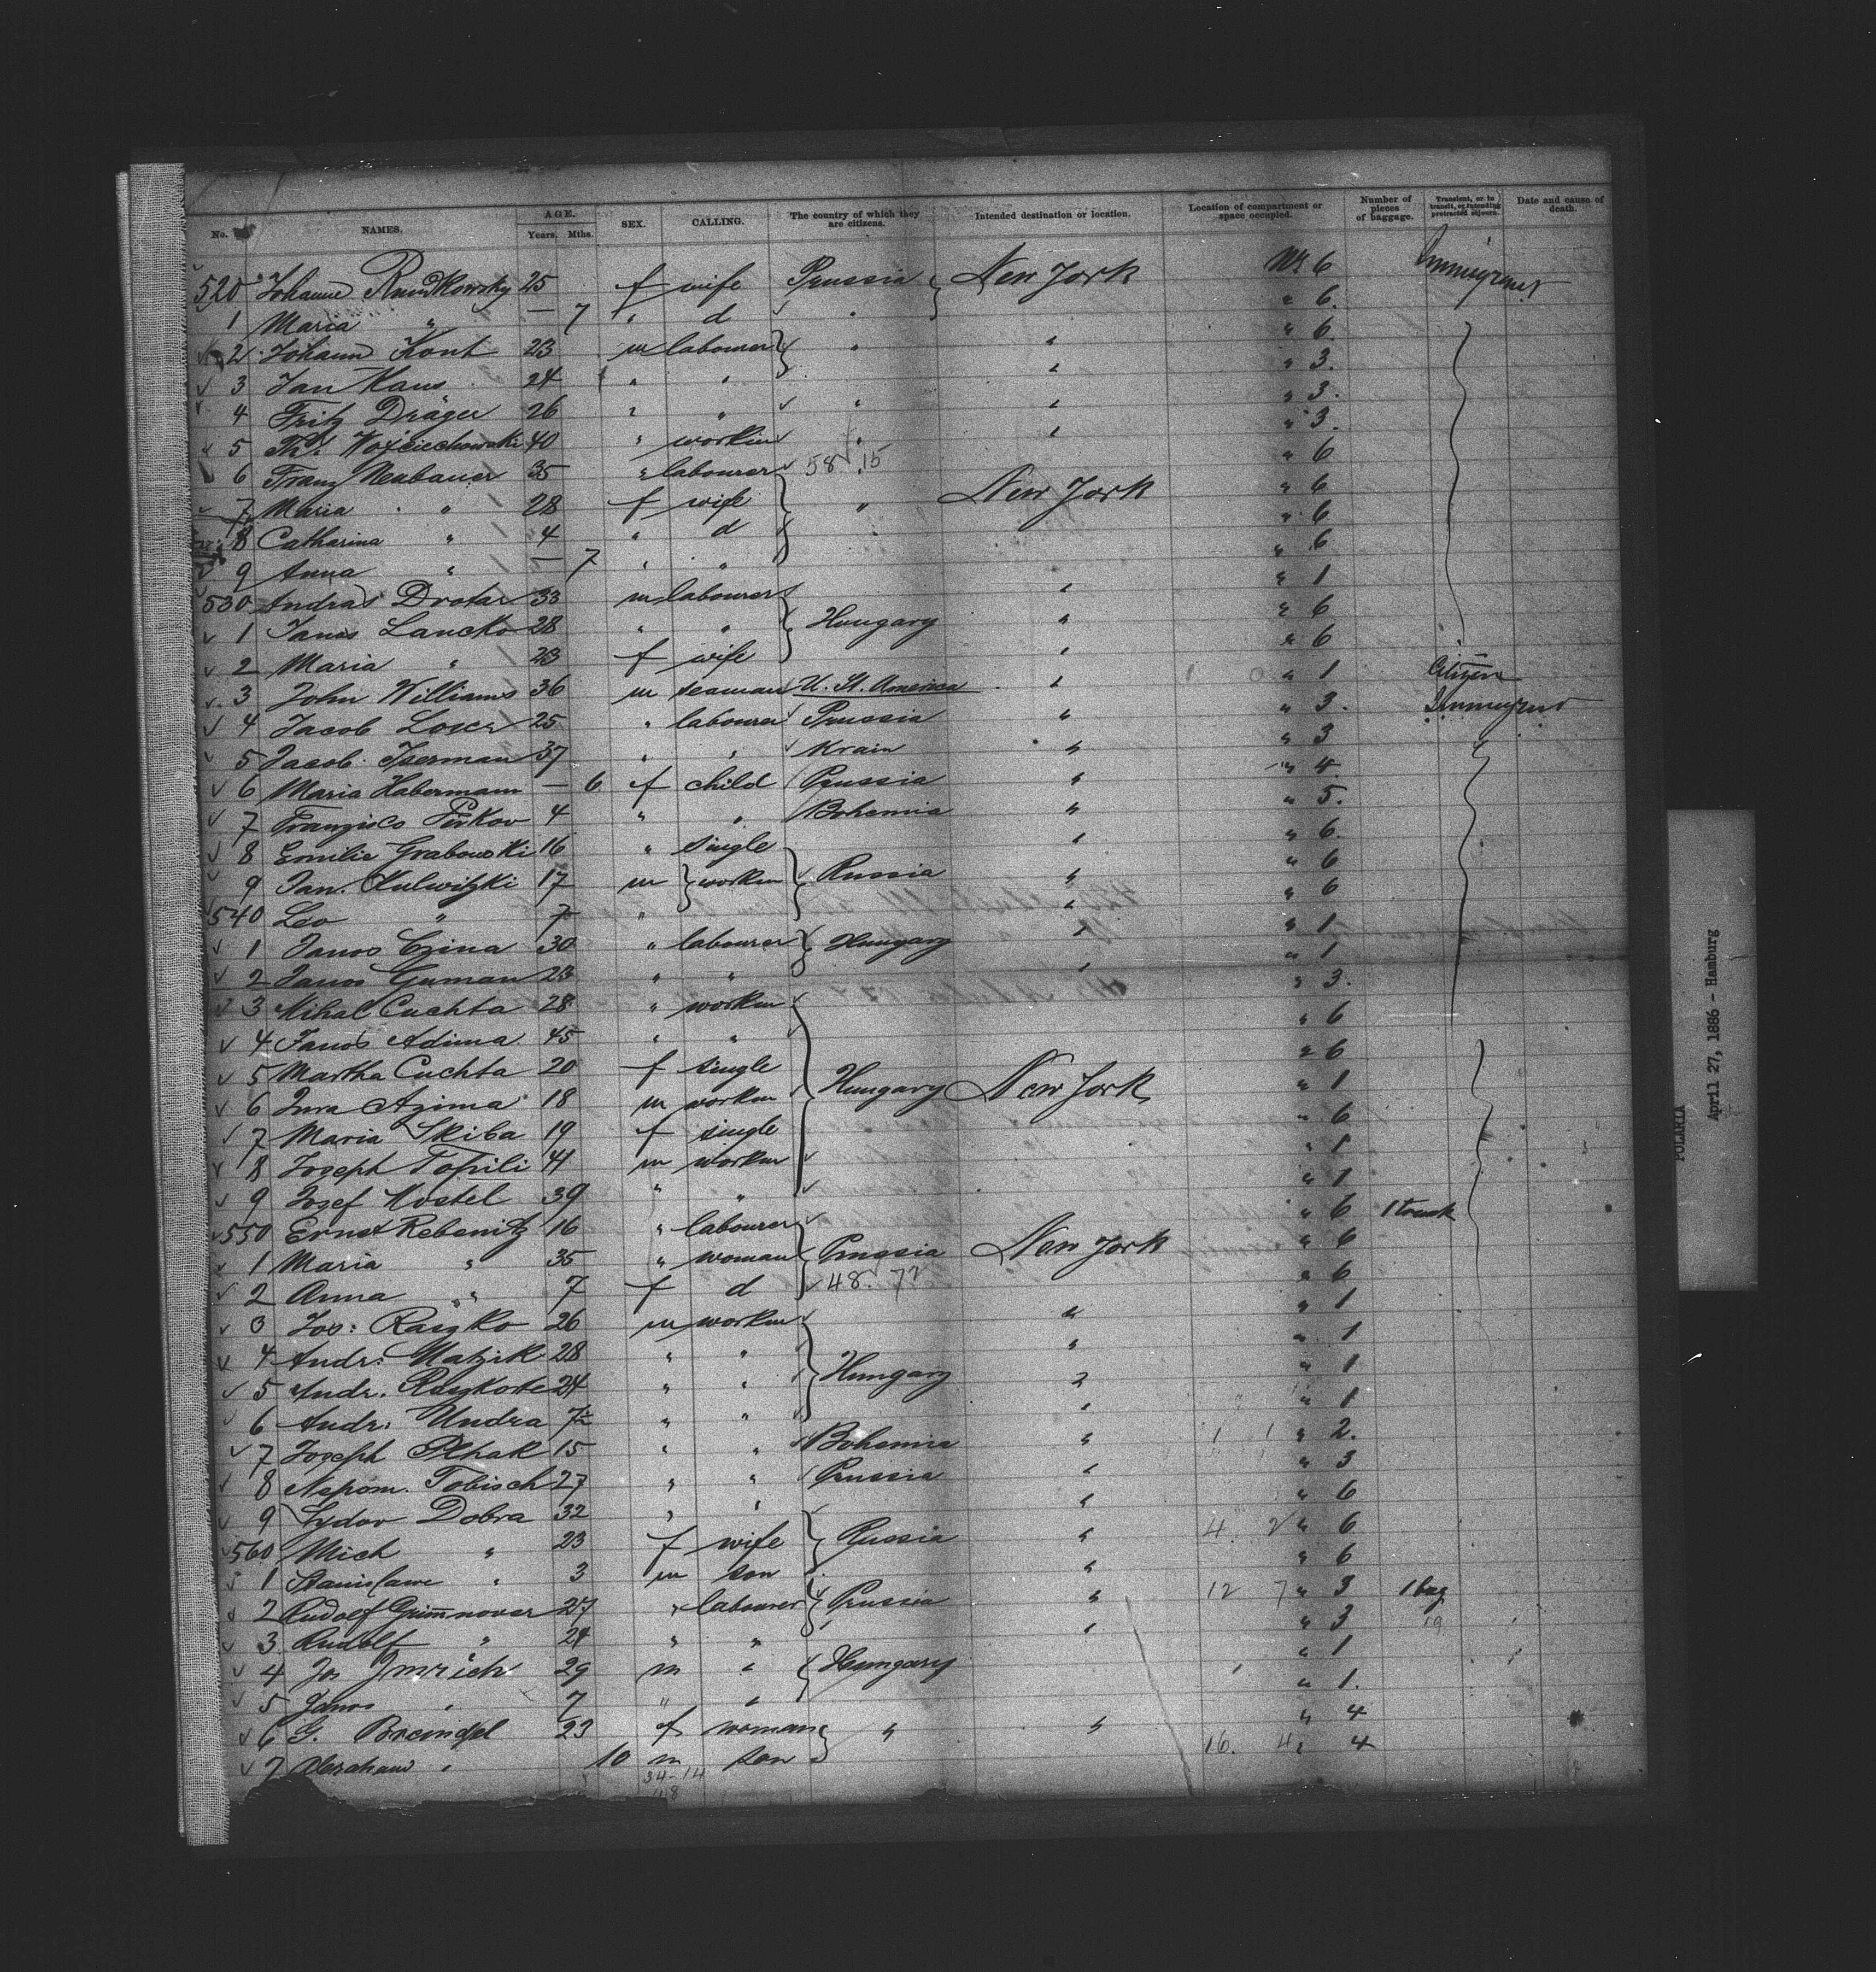 No. NAMES. AGE. Years. Mths. SEX. CALLING. The country of which they are citizens. Intended destination or location. Location of compartment or space occupied. Number of pieces of baggage. Transient, or in transit, or intending protracted sojourn. Date and cause of death.
520 Johanne 25 f wife Prussia New York No 6 Immigrant
1 Maria " — 7 " d " " 6.
2 Johann Kont 23 m labourer " " " 6.
3 Jan Kaus 24 " " " " 3.
4 Fritz Dräger 26 " " " " " 3.
5 Th. Woyciechowski 40 " workm " " " 3.
6 Franz Neubauer 35 " labourer 58 15 " 6
7 Maria " 28 f wife " New York " 6
8 Catharina " 4 " d " " 6
9 Anna " — 7 " " " 6
530 Andras Drotar 33 m labourer " " 1
1 Janos Lancko 28 " " Hungary " " 6
2 Maria " 23 f wife " " 6
3 John Williams 36 m seaman U. St. America " " 1 Citizen
4 Jacob 25 " labourer Prussia " " 3. Immigrant
5 Jacob Iserman 37 " " Krain " " 3
6 Maria Habermann — 6 f child Prussia " " 4.
7 Franzisco 4 " " Bohemia " " 5.
8 Emilie Grabowski 16 " single " " 6.
9 Jan. Kulwitzki 17 m workm Russia " " 6
540 Leo " 7 " " " 6
1 Janos Czina 30 " labourer Hungary " " 1
2 Janos Guman 23 " " " " 1
3 Mihal Cuchta 28 " workm " 3.
4 Janos Adima 45 " " " 6
5 Martha Cuchta 20 f single " 6
6 Jura Azima 18 m workm Hungary New York " 1
7 Maria Skiba 19 f single " 6
8 Joseph 41 m workm " 1
9 Josef Kostel 39 " " " 1
550 Ernst Rebenitz 16 " labourer " 6 1 trunk
1 Maria " 35 " woman Prussia New York " 6
2 Anna " 7 f d 48. 72 " 6
3 Jos: Raszko 26 m workm " " 1
4 Andr: Matzik 28 " " " " 1
5 Andr. 24 " " Hungary " " 1
6 Andr: Undra " " " " 1
7 Joseph Plhak 15 " " Bohemia " " 2.
8 Nepom. Tobisch 27 " " Prussia " " 3
9 Dobra 32 " " " " 6
560 Mich " 23 f wife Russia " 4 2 " 6
1 Stanislawe " 3 m son " " 6
2 Rudolf 27 " labourer Prussia " 12 7 " 3 1 bag
3 Rudolf " 24 " " " " 3 19
4 Jos Imrich 29 m " Hungary " 1
5 Janos " 7 " " " 1.
6 G. 23 f woman " " " 4
7 Abraham " 10 m son 16. 4 " 4
34-14
48
POLARIA
April 27, 1886 - Hamburg